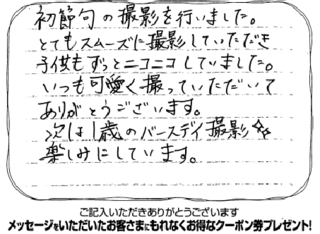 初節句の撮影を行いました。
とてもスムーズに撮影していただき
子供もずっとニコニコしていました。
いつも可愛く撮っていただいて
ありがとうございます。
次は1歳のバースデイ撮影☆☆
楽しみにしています。
ご記入いただきありがとうございます
メッセージをいただいたお客さまにもれなくお得なクーポン券プレゼント!